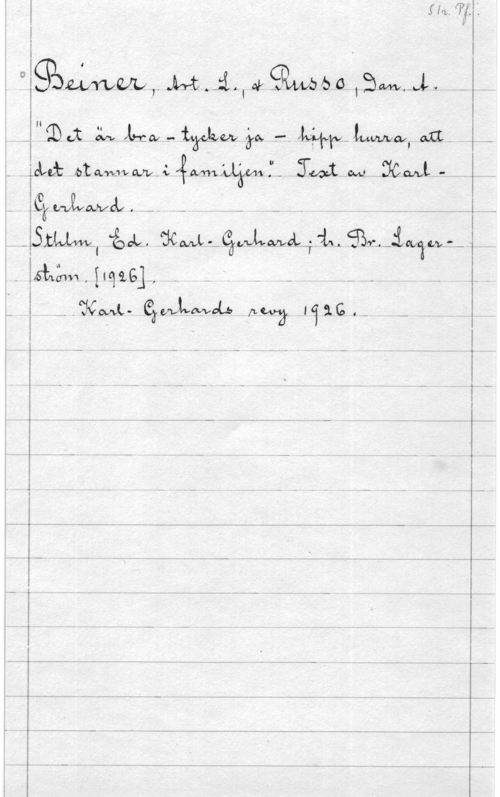 Beiner, Art. L., & Russo, Dan. A.
"Det är bra - tycker ja - hipp hurra, att
det stannar i familjen". Text av Karl-
Gerhard.
Sthlm, Ed. Karl-Gerhard; tr. Br. Lager-
ström. [1926].
Karl-Gerhards revy 1926.